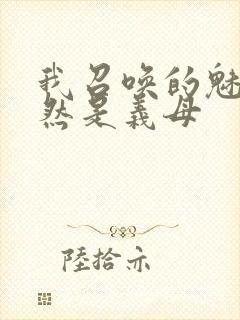 我召唤的魅
然是義母
陸拾亦